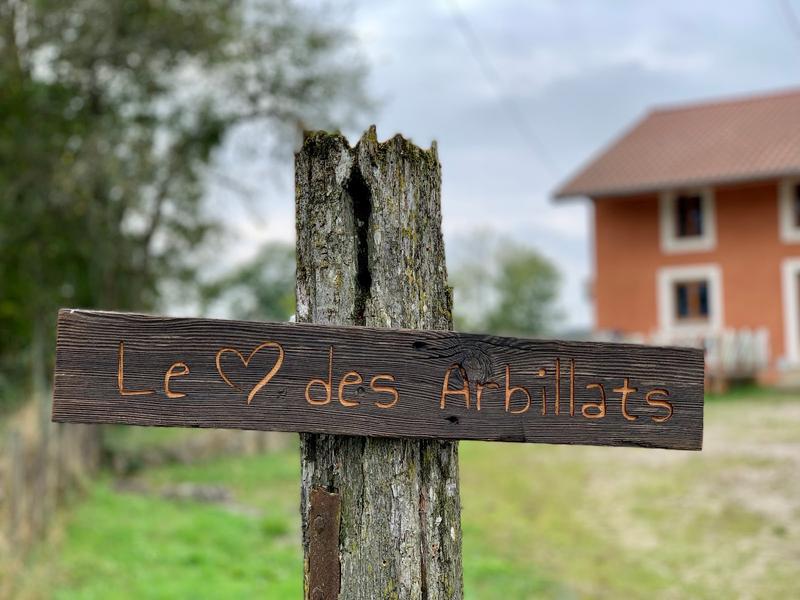 Le ♡ des Arbillats